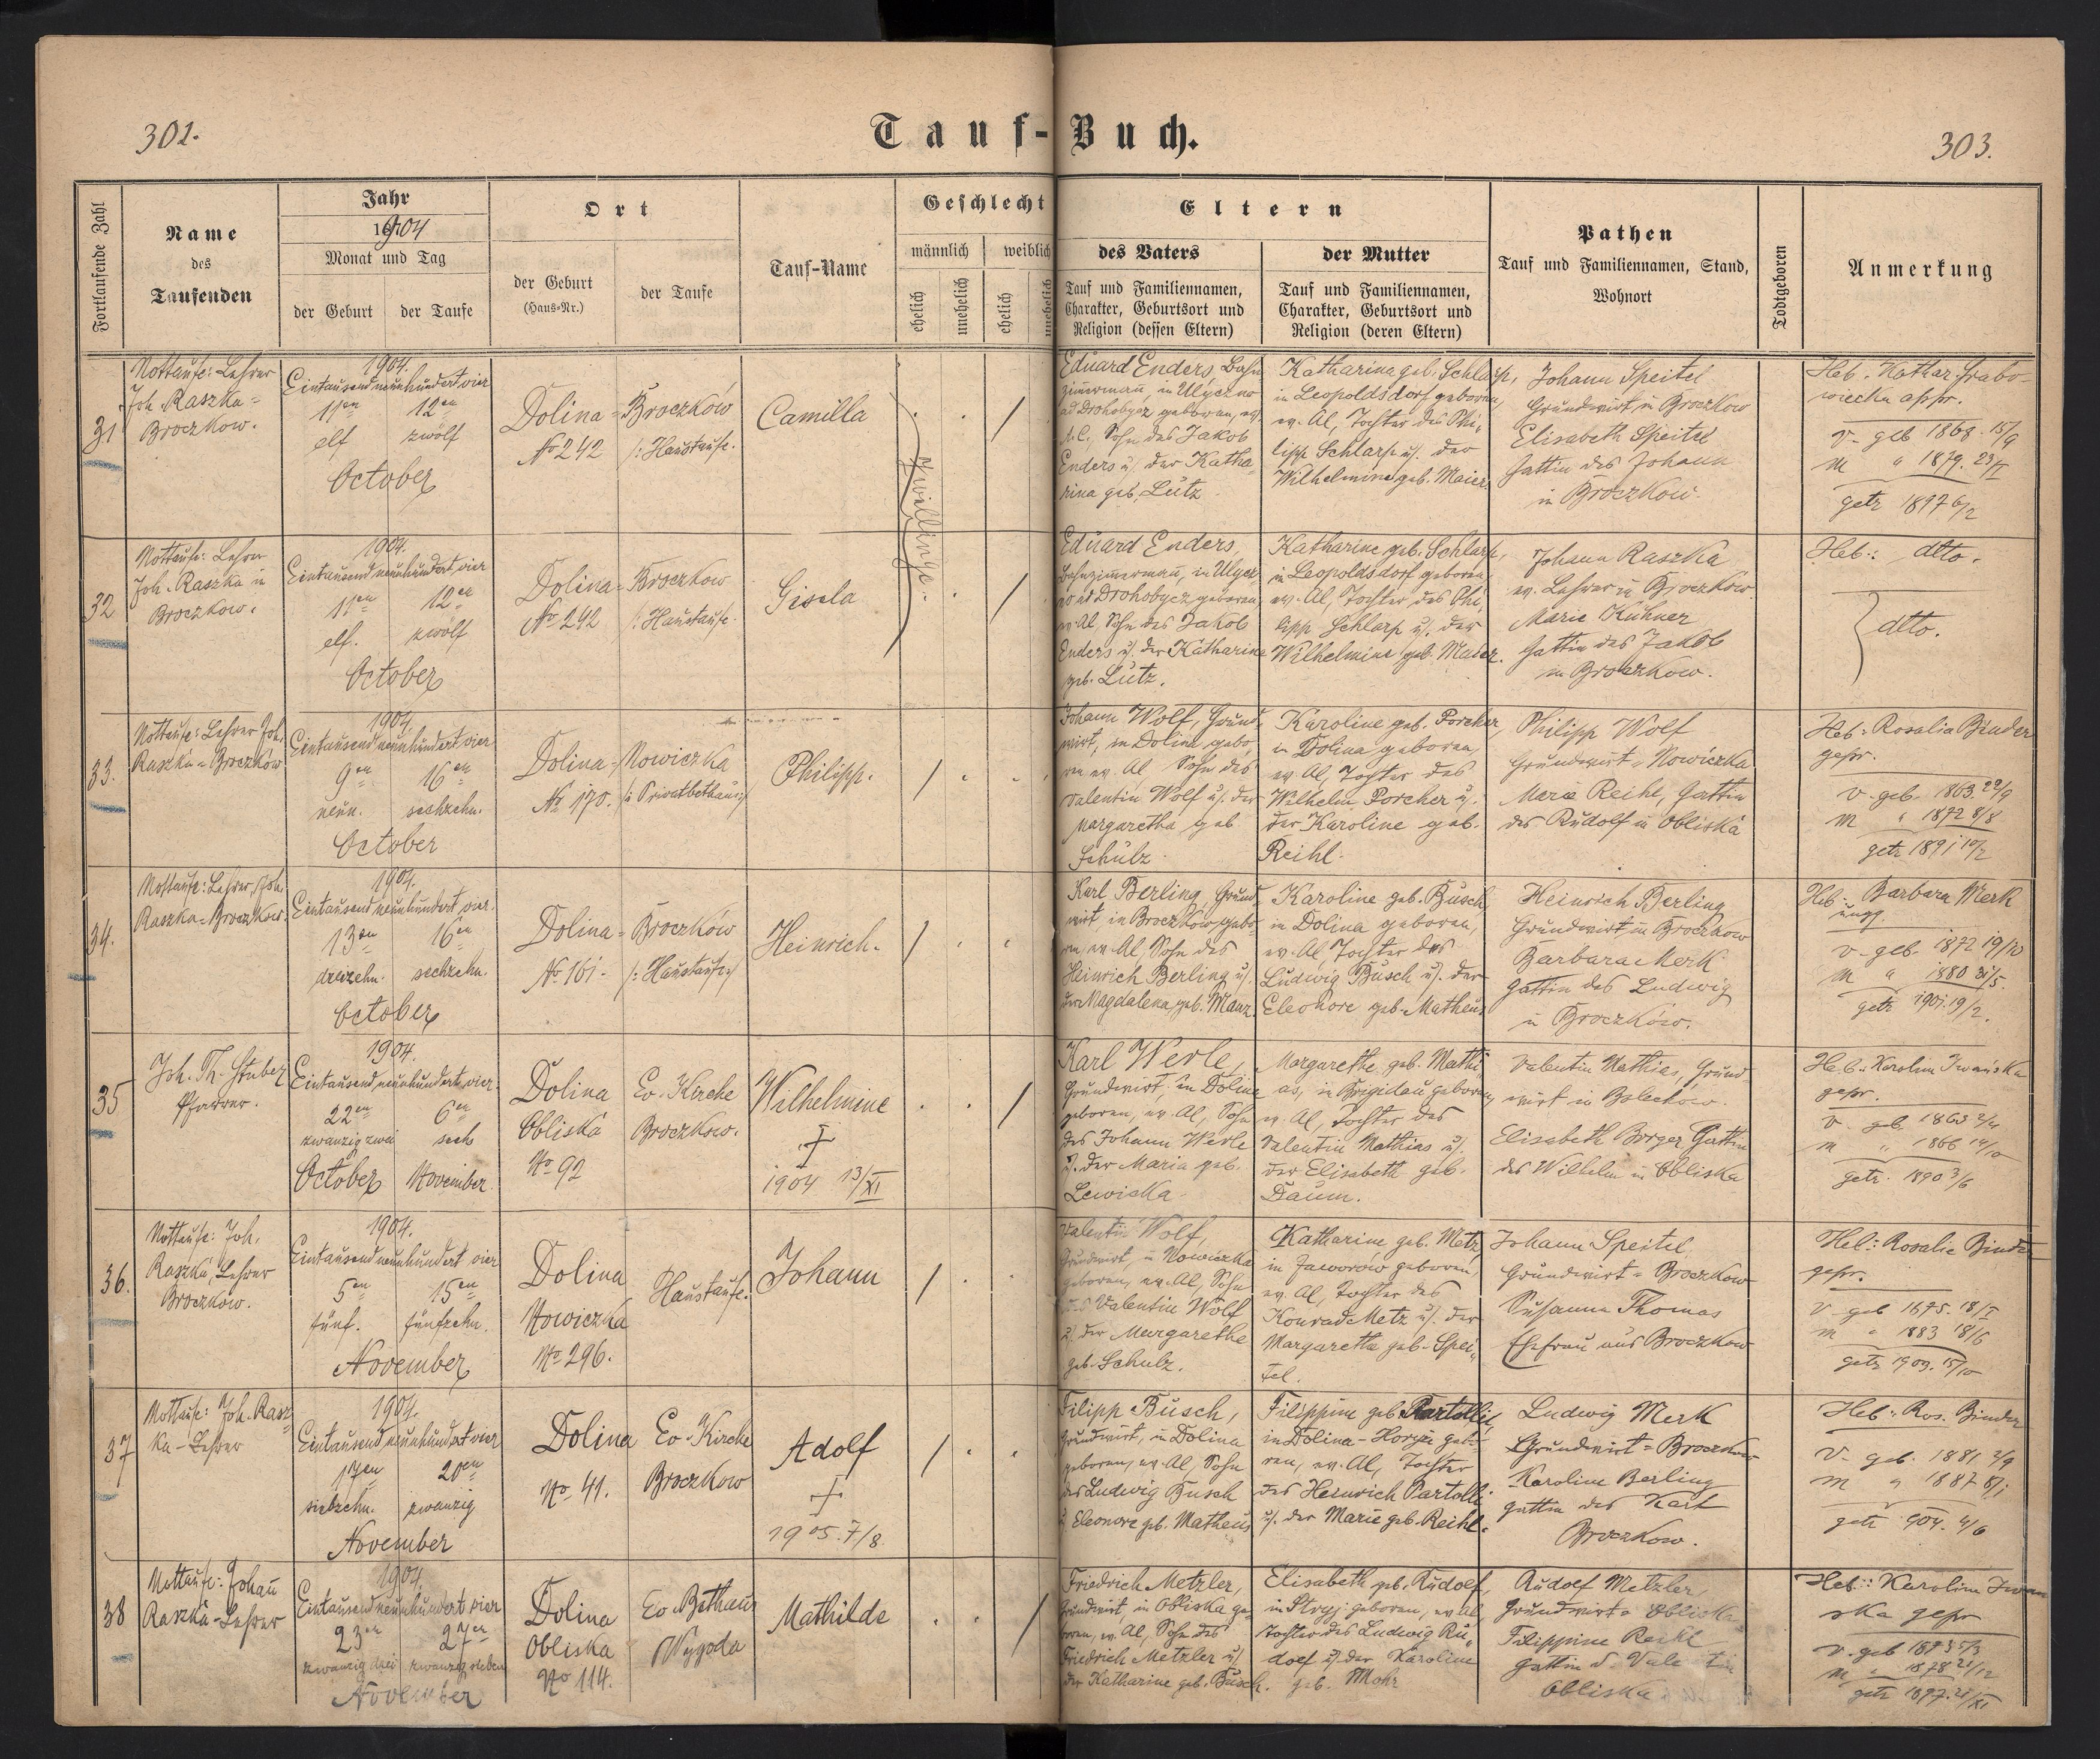 302.
Tauf-Buch.
303.
Fortlaufende Zahl
Name
des
Taufenden
Jahr
1904
Monat und Tag
der Geburt
der Taufe
Ort
der Geburt
(Haus-Nr.)
der Taufe
Tauf-Name
Geschlecht
männlich
weiblich
ehelich
unehelich
ehelich
unehelich
Eltern
des Vaters
Tauf und Familiennamen,
Charakter, Geburtsort und
Religion (dessen Eltern)
der Mutter
Tauf und Familiennamen,
Charakter, Geburtsort und
Religion (deren Eltern)
Pathen
Tauf und Familiennamen, Stand,
Wohnort
Todtgeboren
Anmerkung
31
Nottaufe: Lehrer
Joh. Raszka =
Broczkow.
1904.
Eintausendneunhundertvier
11en 12en
elf zwölf
October
Dolina =
No 242
Broczków
/: Haustaufe.
Camilla
Zwillinge.
Eduard Enders, Bahn
zimmermann, in Ulyczno
ad Drohobycz geboren, ev.
A. C., Sohn des Jakob
Enders u/. der Katha-
rina geb. Lutz.
Katharina geb. Schlarp,
in Leopoldsdorf geboren,
ev. Al, Tochter des Phi-
lipp Schlarp u/. der
Wilhelmine geb. Maier.
Johann Speitel
Grundwirt, in Broczkow
Elisabeth Speitel
Gattin des Johann
in Broczkow.
Heb. Kathar. Grabo-
wiecka appr.
v- geb 1868. 15/9
m " 1879. 23/II
getr 1897 6/2
32
Nottaufe: Lehrer
Joh. Raszka in
Broczkow.
1904.
Eintausendneunhundertvier
11en 12en
elf. zwölf
October
Dolina =
No 242
Broczkow
/: Haustaufe.
Gisela
Eduard Enders,
Bahnzimmermann, in Ulycz-
no ad Drohobycz geboren,
ev. Al, Sohn des Jakob
Enders u/. der Katharine
geb. Lutz.
Katharine geb. Schlarp,
in Leopoldsdorf geboren,
ev. Al, Tochter des Phi-
lipp Schlarp u/. der
Wilhelmine geb. Maier.
Johann Raszka
ev. Lehrer in Broczkow.
Marie Kühner
Gattin des Jakob
in Broczkow.
Heb.: dtto.
dtto.
33.
Nottaufe: Lehrer Joh.
Raszka = Broczkow
1904.
Eintausendneunhundertvier
9en 16en
neun. sechzehn.
October
Dolina =
No 170.
Nowiczka
/: Privatbethaus:/
Philipp.
Johann Wolf, Grund-
wirt, in Dolina gebo-
ren ev. Al Sohn des
Valentin Wolf u/. der
Margaretha geb
Schulz.
Karoline geb. Porcher,
in Dolina geboren,
ev. Al, Tochter des
Wilhelm Porcher u/.
der Karoline geb.
Reihl.
Philipp Wolf
Grundwirt = Nowiczka
Marie Reihl, Gattin
des Rudolf in Obliska
Heb: Rosalia Binder
gepr.
v- geb. 1863. 22/9
m " 1872 8/8
getr 1891 10/2
34.
Nottaufe: Lehrer, Joh.
Raszka = Broczkow.
1904.
Eintausendneunhundert vier.
13en 16en
dreizehn. sechzehn.
October
Dolina =
No 161.
Broczków
/: Haustaufe:/
Heinrich.
Karl Berling, Grund-
wirt, in Broczkow gebo-
ren, ev. Al, Sohn des
Heinrich Berling u/.
der Magdalena geb. Manz
Karoline geb. Busch,
in Dolina geboren,
ev. Al, Tochter des
Ludwig Busch u/. der
Eleonore geb. Matheus
Heinrich Berling
Grundwirt in Broczkow
Barbara Merk
Gattin des Ludwig
in Broczków.
Heb: Barbara Merk
ungp.
v- geb. 1872 19/10
m " 1880 31/5.
getr 1901. 19/2.
35
Joh. Th. Stuber
Pfarrer.
1904.
Eintausendneunhundertvier.
22en 6en
zwanzigzwei sechs
October November.
Dolina
Obliska
No 92
Ev. Kirche
Broczkow.
Wilhelmine
†
1904 13/XI
Karl Werle,
Grundwirt, in Dolina
geboren, ev. Al, Sohn
des Johann Werle
u/. der Maria geb.
Lewicka.
Margarethe geb. Mathi-
as, in Brigidau geboren,
ev. Al, Tochter des
Valentin Mathias u/.
der Elisabeth geb.
Daum.
Valentin Mathias, Grund-
wirt in Bolechów.
Elisabeth Borger Gattin
des Wilhelm in Obliska
Heb: Karolina Iwanska
gepr.
v. geb 1863
m " 1866 14/10
getr. 1890 3/6
36.
Nottaufe: Joh.
Raszka, Lehrer
Broczkow.
1904.
Eintausendneunhundert vier
5en 15en
fünf. fünfzehn.
November
Dolina
Nowiczka
No 296.
Haustaufe.
Johann
Valentin Wolf,
Grundwirt, in Nowiczka
geboren, ev. Al, Sohn
des Valentin Wolf
u/. der Margarethe
geb. Schulz.
Katharine geb. Metz
in Jaworów geboren,
ev. Al, Tochter des
Konrad Metz u/. der
Margaretha geb. Spei-
tel.
Johann Speitel
Grundwirt = Broczkow
Susanna Thomas
Ehefrau aus Broczkow
Heb: Rosalie Binder
gepr.
v- geb 1875. 18/I
m " 1883 18/6
getr 1903. 15/10
37
Nottaufe: Joh. Rasz-
ka - Lehrer
1904.
Eintausendneunhundertvier
17en 20en
siebzehn. zwanzig
November
Dolina
No 41.
Ev. Kirche
Broczkow
Adolf
†
1905. 7/8.
Filipp Busch,
Grundwirt, in Dolina
geboren, ev. Al, Sohn
des Ludwig Busch
u. Eleonore geb. Matheus
Filippine geb. Bartolli,
in Dolina - geb-
ren, ev. Al, Tochter
des Heinrich Partolli
u/. der Marie geb. Reihl.
Ludwig Merk
Grundwirt = Broczkow
Karoline Berling
Gattin des Karl
Broczkow.
Heb: Ros. Binder
v. geb. 1881 2/9
m " 1887
getr 904. 4/6
38
Nottaufe: Johann
Raszka - Lehrer
1904.
Eintausendneunhundert vier
23en 27en
zwanzig drei zwanzig sieben
November
Dolina
Obliska
No 114.
Ev. Bethaus
Wygoda
Mathilde
Friedrich Metzler,
Grundwirt, in Obliska ge-
boren, ev. Al, Sohn des
Friedrich Metzler u/.
der Katharine geb. Busch.
Elisabeth geb. Rudolf,
in Stryj geboren, ev. Al,
Tochter des Ludwig Ru-
dolf u/. der Karoline
geb. Mohr
Rudolf Metzler,
Grundwirt = Obliska
Filippine Reihl
Gattin d. Valentin
Obliska
Heb: Karolina Iwan-
ska gepr
v. geb 1873
m " 1878 21/12
getr 1897. 21/XI